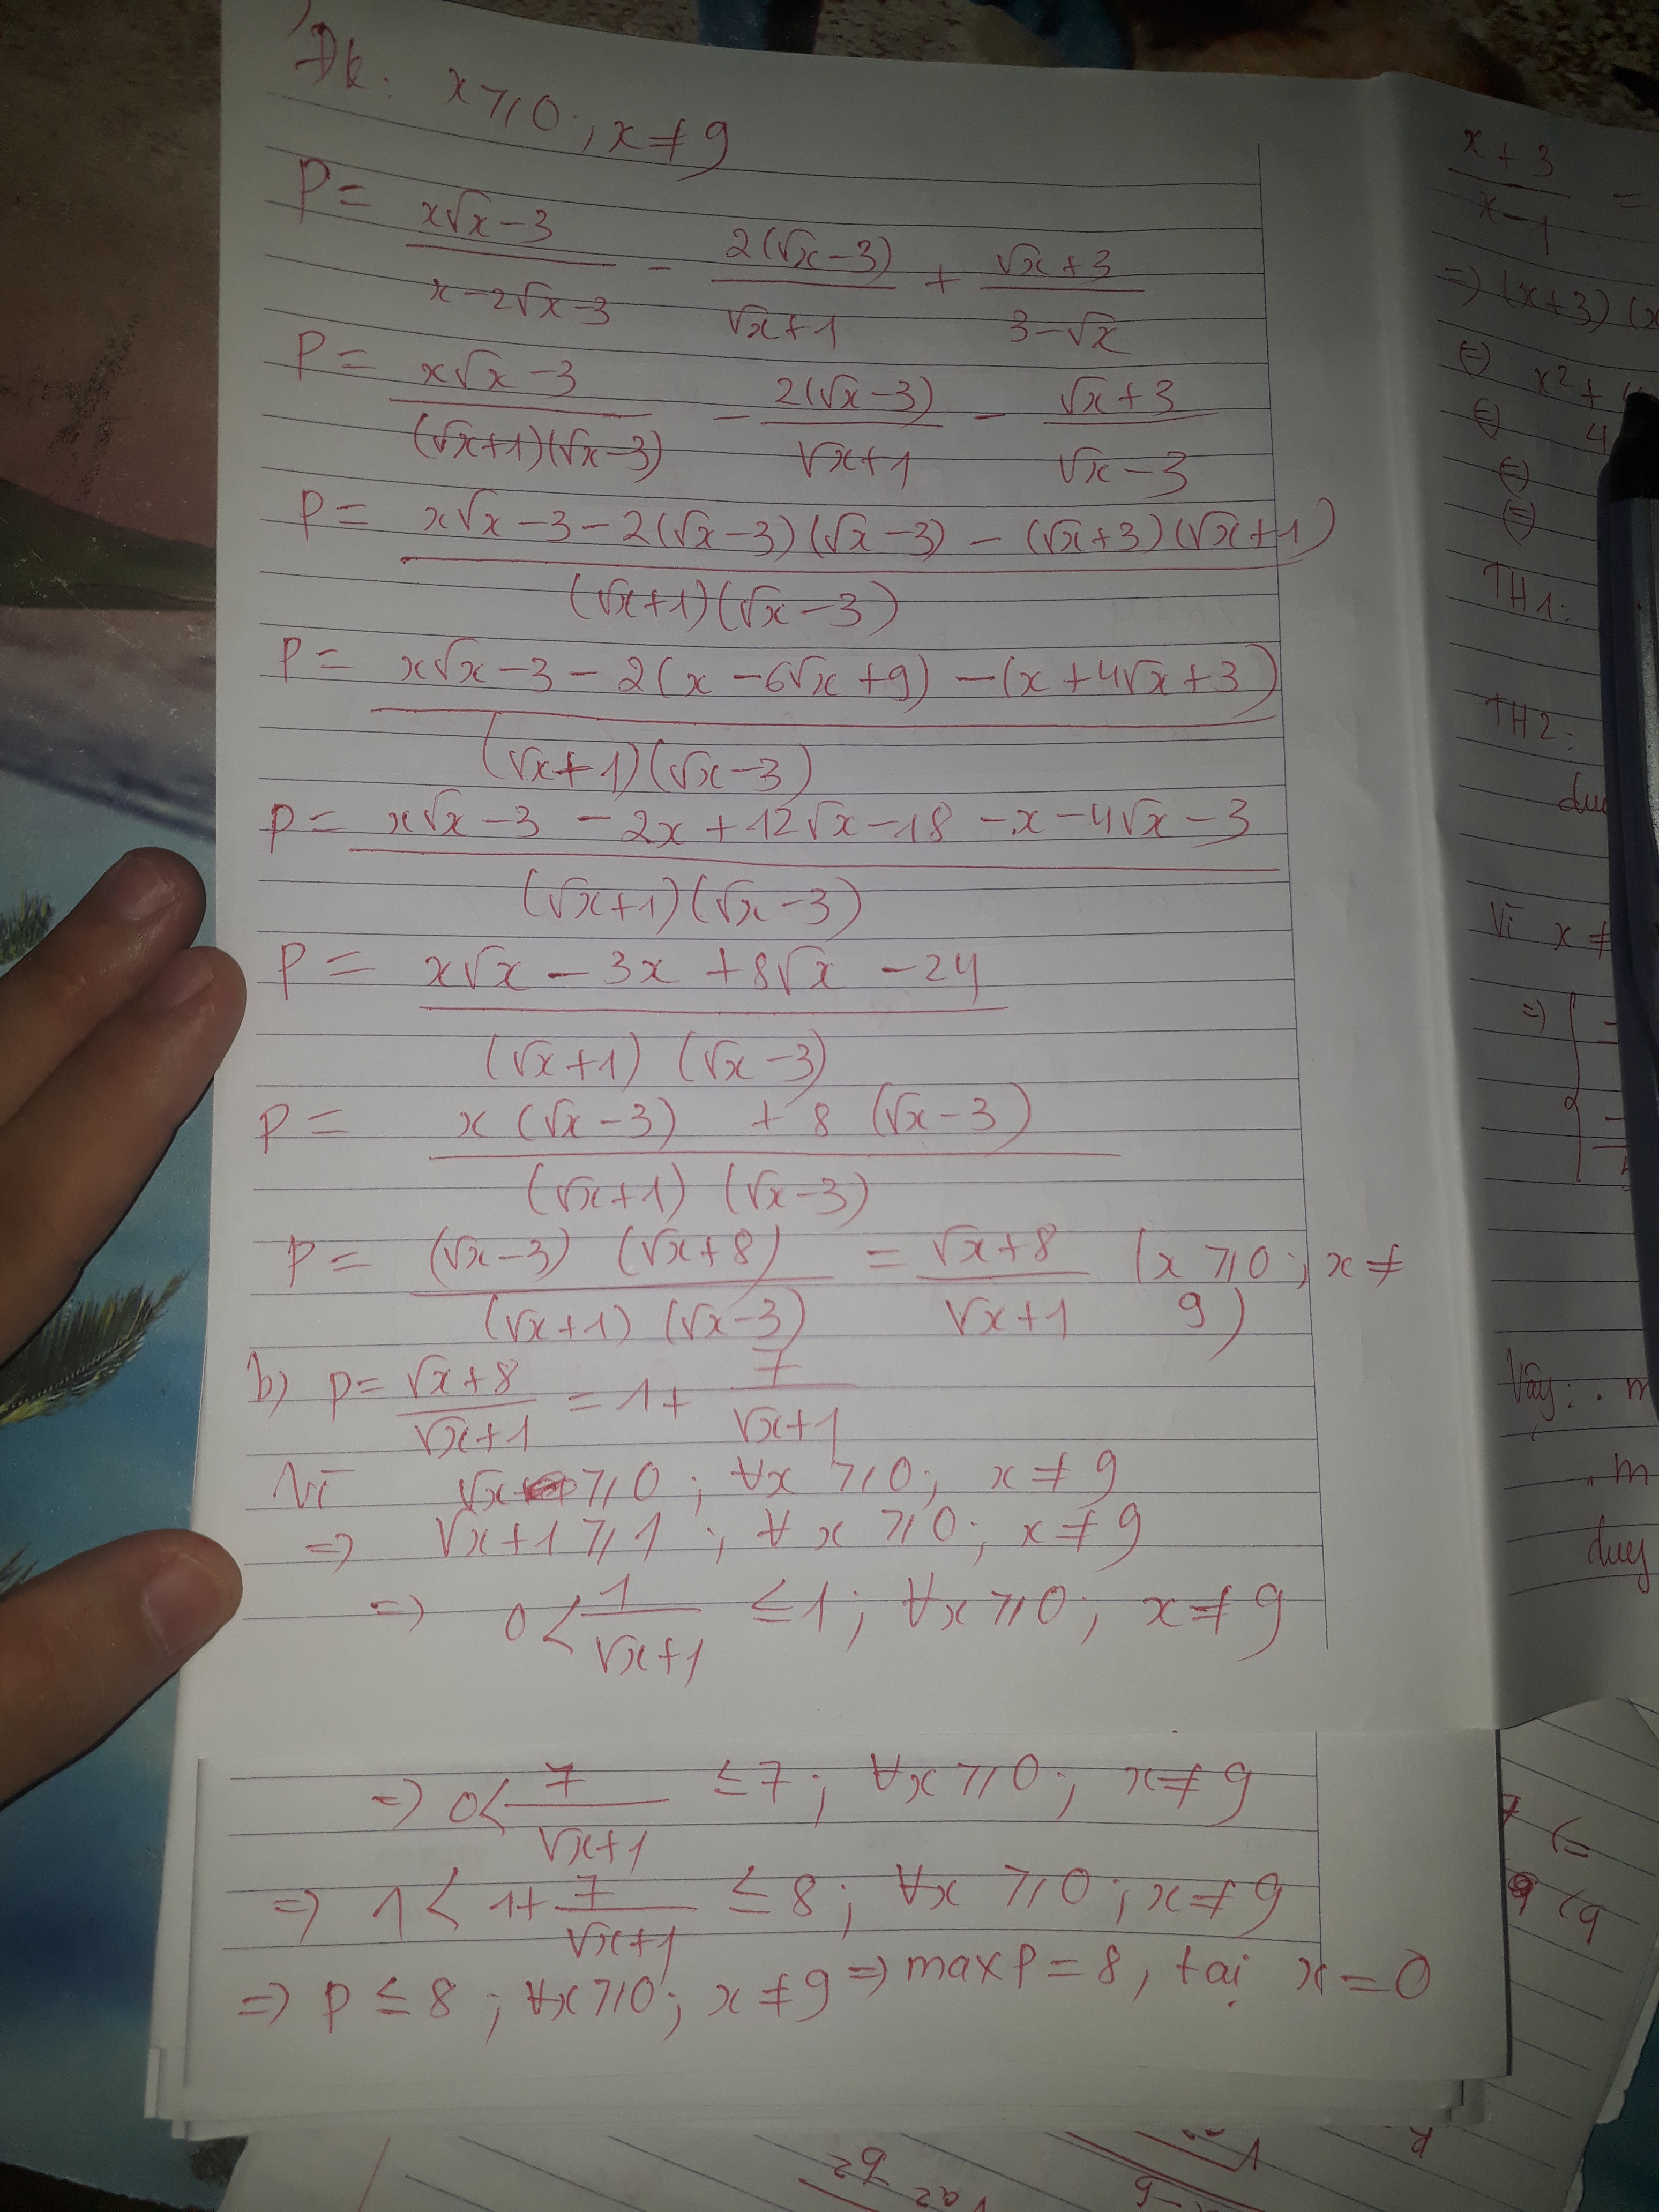 Đk: x ≥ 0; x ≠ 9
P = (x√x - 3)/(x - 2√x - 3) - 2(√x - 3)/(√x + 1) + (√x + 3)/(3 - √x)
P = (x√x - 3)/((√x+1)(√x - 3)) - 2(√x - 3)/(√x + 1) - (√x + 3)/(√x - 3)
P = (x√x - 3 - 2(√x - 3)(√x - 3) - (√x + 3)(√x + 1))/((√x+1)(√x - 3))
P = (x√x - 3 - 2(x - 6√x + 9) - (x + 4√x + 3))/((√x+1)(√x - 3))
P = (x√x - 3 - 2x + 12√x - 18 - x - 4√x - 3)/((√x+1)(√x - 3))
P = (x√x - 3x + 8√x - 24)/((√x+1)(√x - 3))
P = (x(√x - 3) + 8(√x - 3))/((√x+1)(√x - 3))
P = ((√x - 3)(√x + 8))/((√x+1)(√x - 3)) = (√x + 8)/(√x + 1) (x ≥ 0; x ≠
9)
b) P = (√x + 8)/(√x + 1) = 1 + 7/(√x + 1)
Vì √x ≥ 0; ∀x ≥ 0; x ≠ 9
=> √x + 1 ≥ 1; ∀x ≥ 0; x ≠ 9
=> 0 < 1/(√x + 1) ≤ 1; ∀x ≥ 0; x ≠ 9
=> 0 < 7/(√x + 1) ≤ 7; ∀x ≥ 0; x ≠ 9
=> 1 < 1 + 7/(√x + 1) ≤ 8; ∀x ≥ 0; x ≠ 9
=> P ≤ 8; ∀x ≥ 0; x ≠ 9 => max P = 8, tại x = 0
(x + 3)/(x - 1) =
=> (x+3)(x
<=> x² + 4
<=> 4
<=>
<=>
TH1:
TH2:
Vì x ≠
=>
Vậy: . m
. m
duy